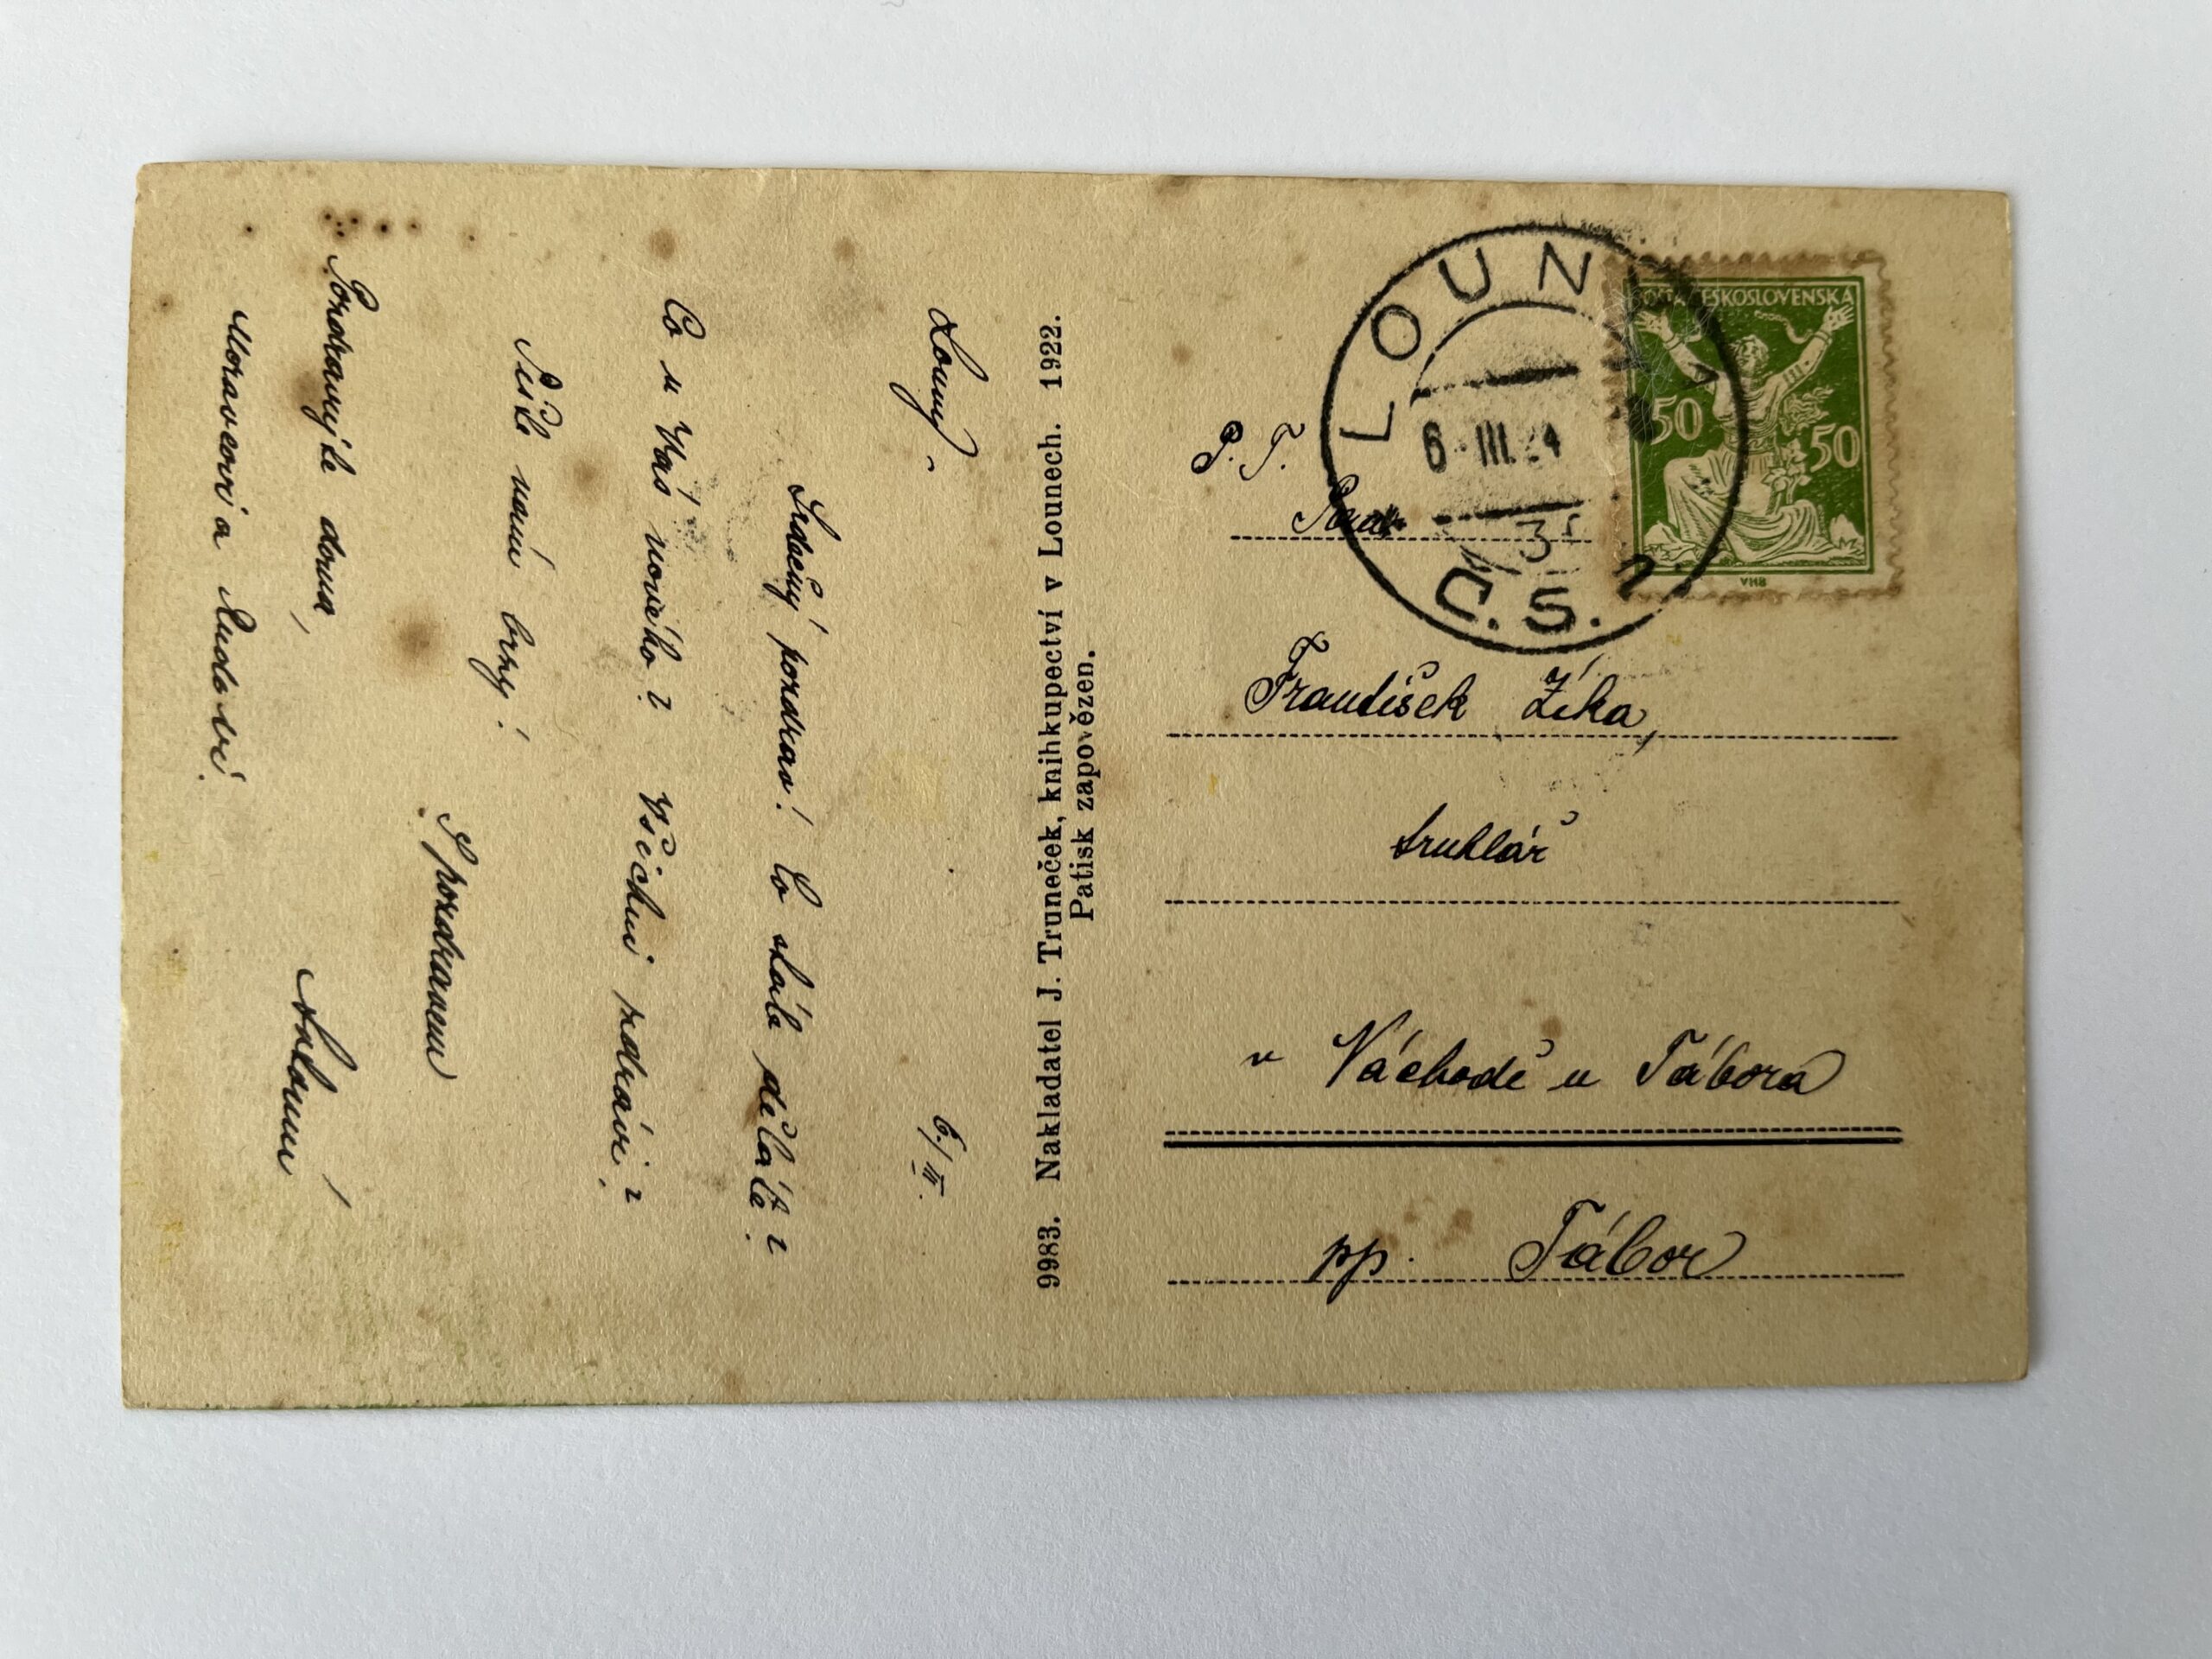 Louny, 6./III.
Srdečný pozdrav! Co stále děláte?
Co u Vás nového? Všichni zdrávi?
Pište námi brzy!
S pozdravem
Pozdravujte doma,
Moravcovi a Rudovi.
9983. Nakladatel J. Truneček, knihkupectví v Lounech. 1922.
Patisk zapovězen.
LOUNY
6 III. 24
Č. S.
POŠTA ČESKOSLOVENSKÁ
50 50
VHB
P. T.
Pan
František Zíka,
truhlář
v Náchodě u Tábora
pp. Tábor